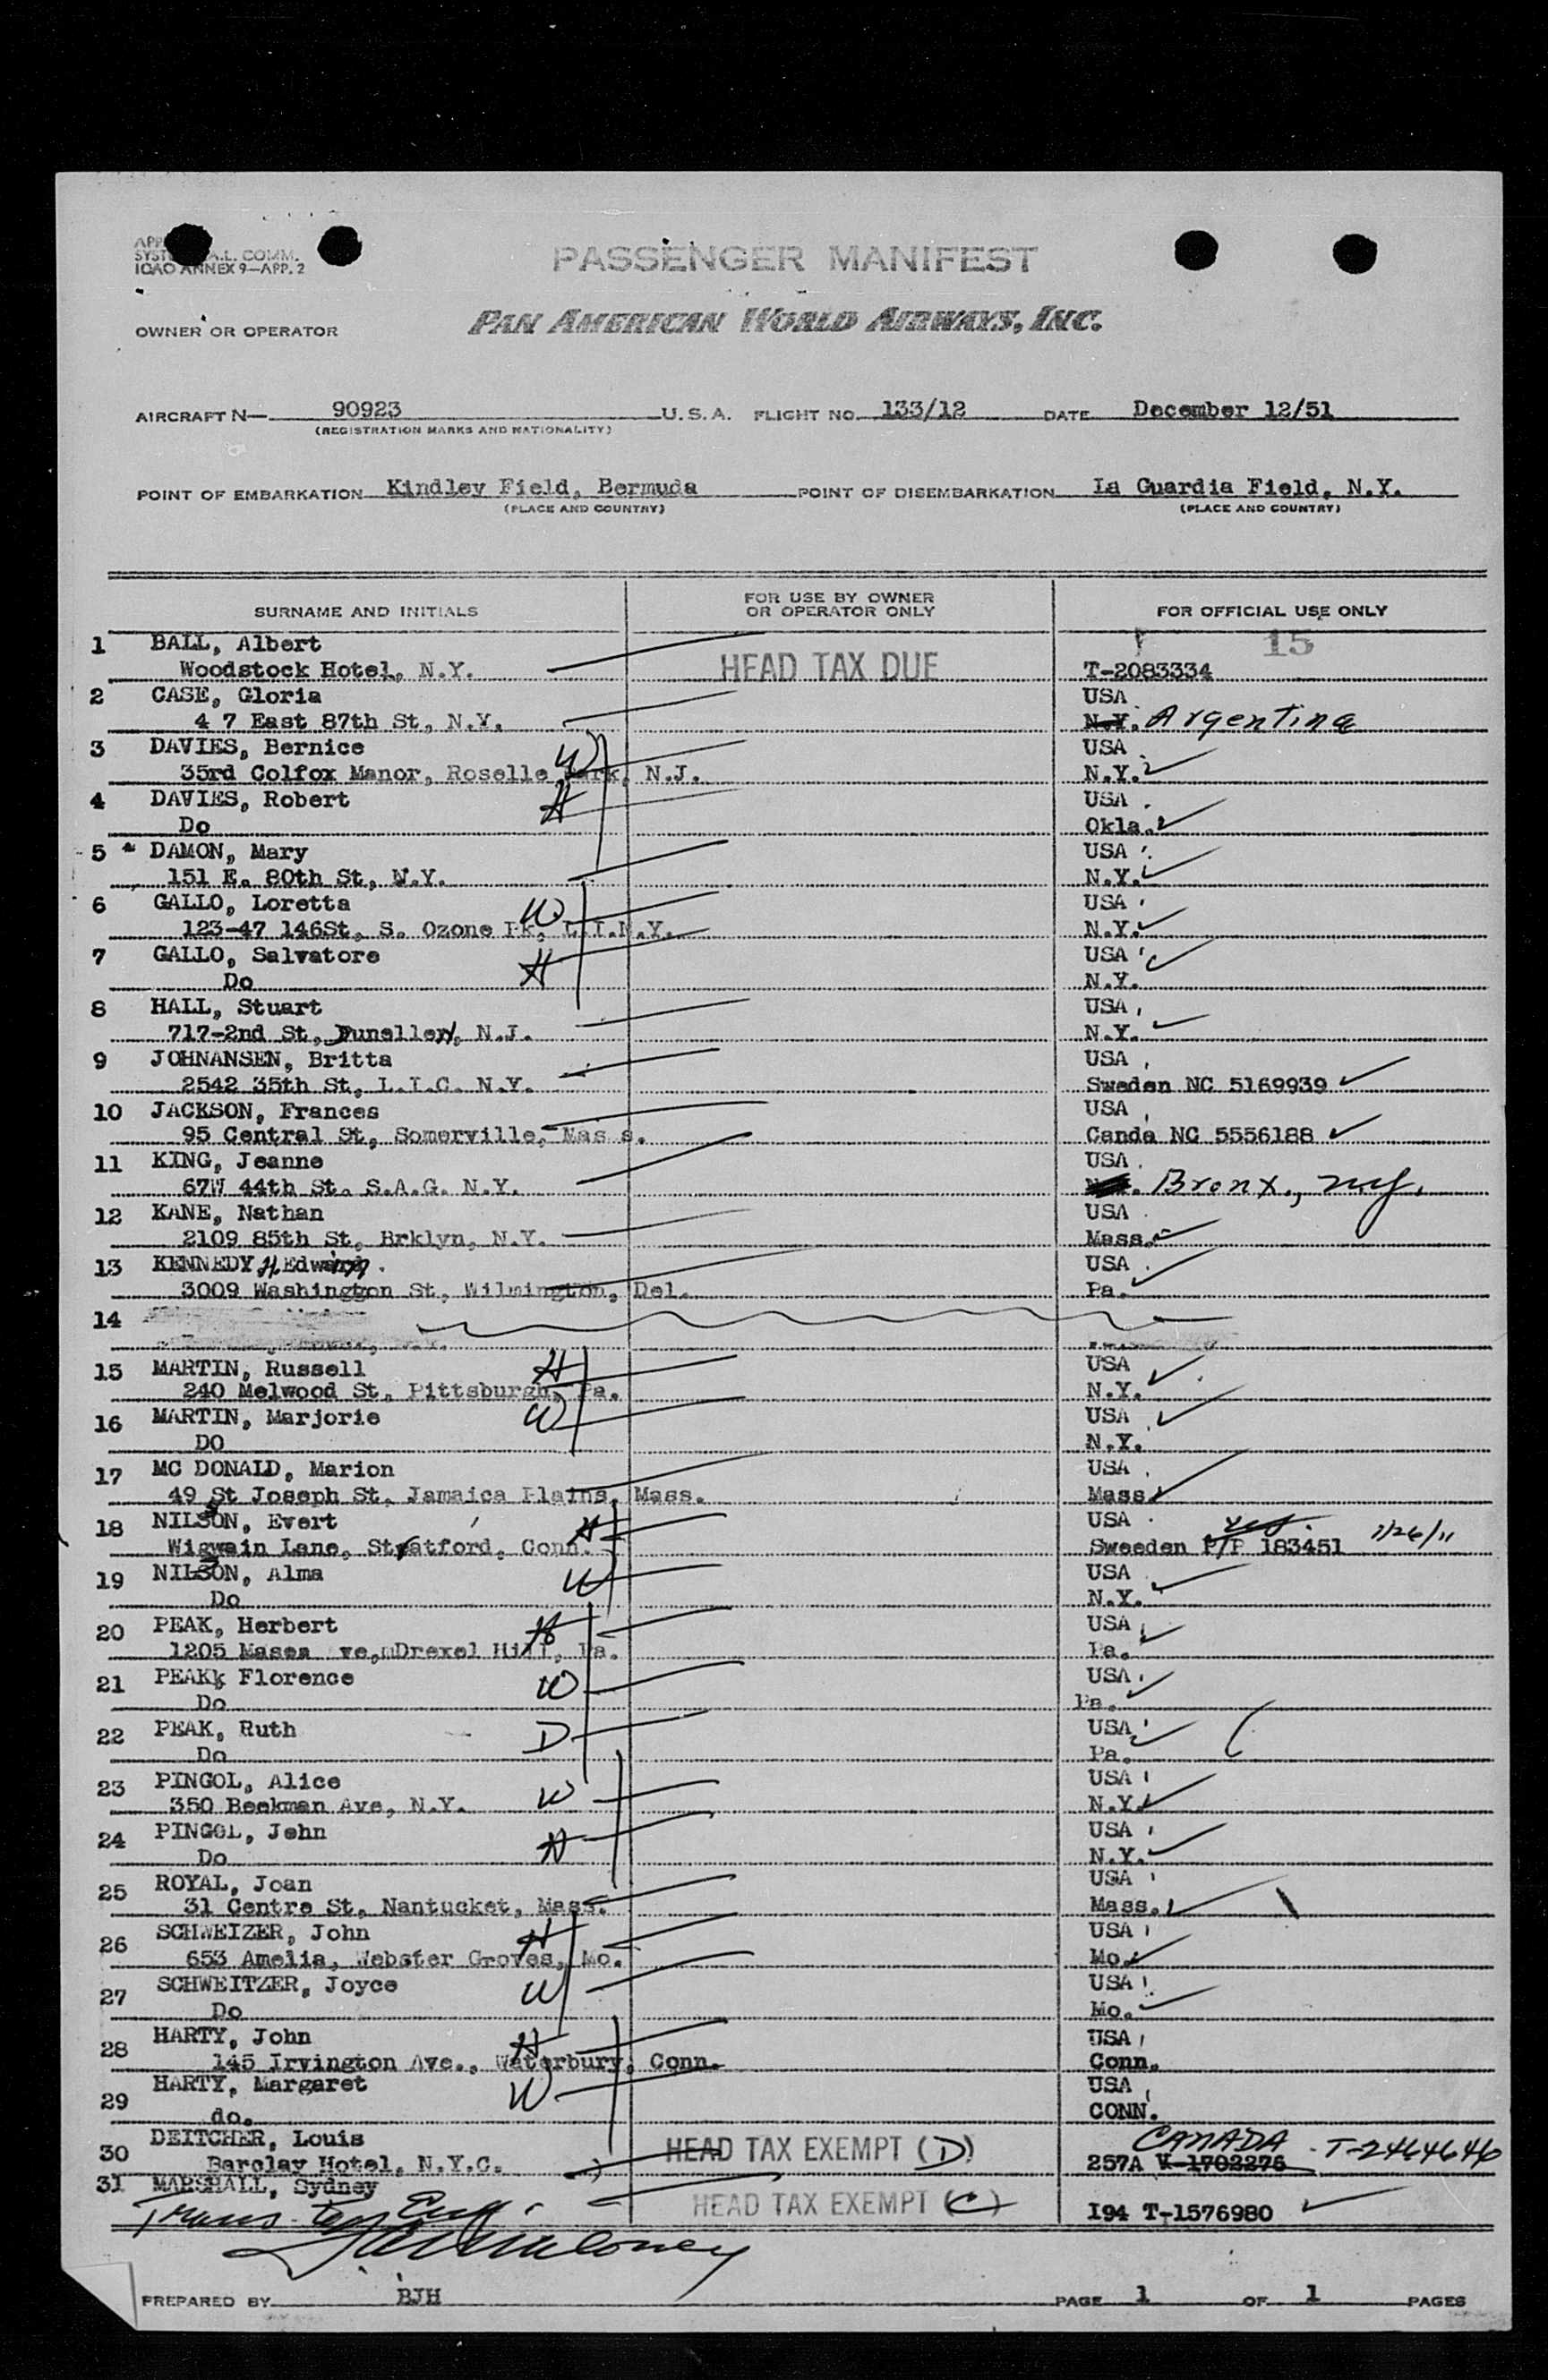 PASSENGER MANIFEST
A.L. COMM.
ICAO ANNEX 9—APP. 2
OWNER OR OPERATOR PAN AMERICAN WORLD AIRWAYS, INC.
AIRCRAFT N— 90923 U.S.A. FLIGHT NO. 133/12 DATE December 12/51
(REGISTRATION MARKS AND NATIONALITY)
POINT OF EMBARKATION Kindley Field, Bermuda POINT OF DISEMBARKATION La Guardia Field, N.Y.
(PLACE AND COUNTRY) (PLACE AND COUNTRY)
SURNAME AND INITIALS FOR USE BY OWNER OR OPERATOR ONLY FOR OFFICIAL USE ONLY
1 BALL, Albert 15
Woodstock Hotel, N.Y. HEAD TAX DUE T-2083334
2 CASE, Gloria USA
4 7 East 87th St, N.Y. N.Y. Argentina
3 DAVIES, Bernice W USA
35rd Colfox Manor, Roselle Park, N.J. N.Y.
4 DAVIES, Robert H USA
Do Okla.
5 DAMON, Mary USA
151 E. 80th St, N.Y. N.Y.
6 GALLO, Loretta W USA
123-47 146St, S. Ozone Pk, L.I.N.Y. N.Y.
7 GALLO, Salvatore H USA
Do N.Y.
8 HALL, Stuart USA
717-2nd St, Dunellen, N.J. N.Y.
9 JOHNANSEN, Britta USA
2542 35th St, L.I.C. N.Y. Sweden NC 5169939
10 JACKSON, Frances USA
95 Central St, Somerville, Mas s. Canda NC 5556188
11 KING, Jeanne USA
67W 44th St. S.A.G. N.Y. Bronx., NY.
12 KANE, Nathan USA
2109 85th St, Brklyn, N.Y. Mass.
13 KENNEDY H. Edward USA
3009 Washington St, Wilmington, Del. Pa.
14
15 MARTIN, Russell H USA
240 Melwood St, Pittsburgh, Pa. N.Y.
16 MARTIN, Marjorie W USA
DO N.Y.
17 MC DONALD, Marion USA
49 St Joseph St, Jamaica Plains, Mass. Mass
18 NILSON, Evert H USA
Wigwain Lane, Stratford, Conn. Sweeden P/P 183451 1/26/11
19 NILSON, Alma W USA
Do N.Y.
20 PEAK, Herbert H USA
1205 Mases ve,mDrexel Hill, Pa. Pa.
21 PEAK, Florence W USA
Do Pa.
22 PEAK, Ruth D USA
Do Pa.
23 PINGOL, Alice W USA
350 Beekman Ave, N.Y. N.Y.
24 PINGOL, John H USA
Do N.Y.
25 ROYAL, Joan USA
31 Centre St, Nantucket, Mass. Mass.
26 SCHWEIZER, John H USA
653 Amelia, Webster Groves, Mo. Mo.
27 SCHWEITZER, Joyce W USA
Do Mo.
28 HARTY, John H USA
145 Irvington Ave., Waterbury, Conn. Conn.
29 HARTY, Margaret W USA
do. CONN.
30 DEITCHER, Louis HEAD TAX EXEMPT (D) CANADA T-2464646
Barclay Hotel, N.Y.C. 257A V-1702276
31 MARSHALL, Sydney HEAD TAX EXEMPT (C) I94 T-1576980
PREPARED BY BJH PAGE 1 OF 1 PAGES